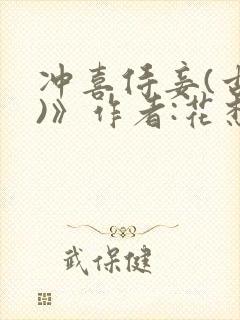 冲喜侍妾(古
)》作者:花
武保健